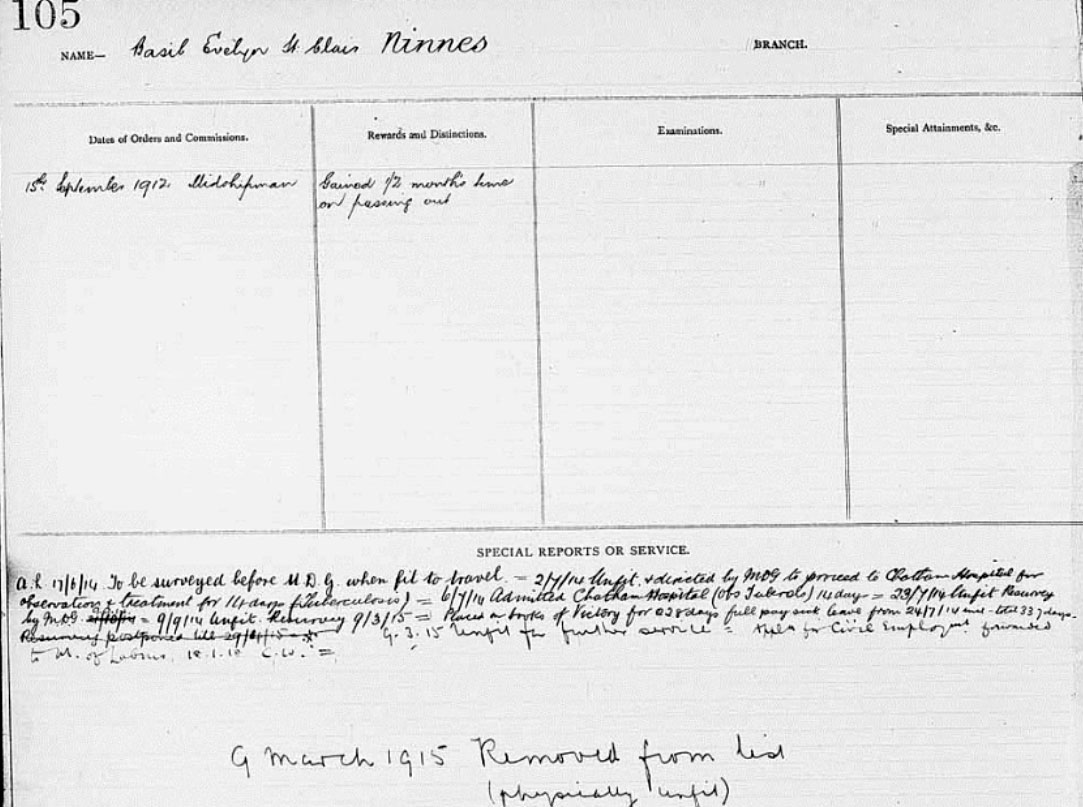 105
NAME— Basil Evelyn St Clair Ninnes
BRANCH.
Dates of Orders and Commissions.
Rewards and Distinctions.
Examinations.
Special Attainments, &c.
15th September 1912 Midshipman
Gained 1/2 month's time
on passing out
SPECIAL REPORTS OR SERVICE.
17/6/14 To be surveyed before M.D.G. when fit to travel. = 2/7/14 Unfit. & directed by MDG to proceed to Chatham Hospital for
observation & treatment for 14 days (Tuberculosis) = 6/7/14 Admitted Chatham Hospital (obs Tubercle) 14 days = 23/7/14 Unfit Resurvey
by M.D.G. = 9/9/14 Unfit. Resurvey 9/3/15 = Placed on books of Victory for 228 days full pay sick leave from 24/7/14
Resurvey postponed till 9.3.15 Unfit for further service = Appln for Civil Employmt forwarded
to M. of Labour, C.W. =
9 March 1915 Removed from list
(physically unfit)